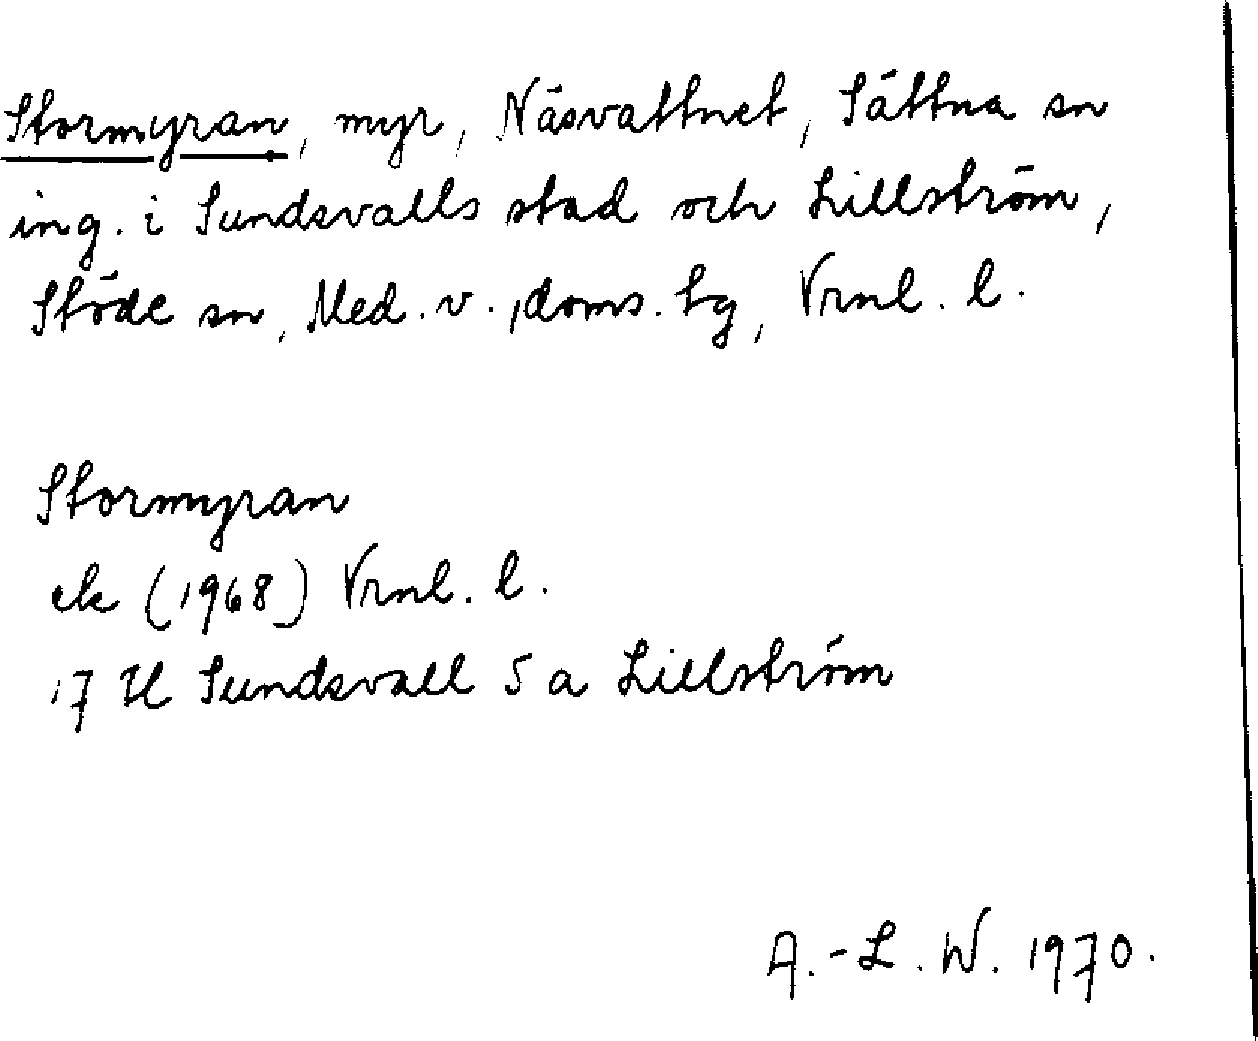 Stormyran, myr, Näsvattnet, Sättna sn
ing. i Sundsvalls stad och Lillström,
Stöde sn, Med. v., doms. tg, Vrnl. l.
Stormyran
ek (1968) Vrnl. l.
17 H Sundsvall 5 a Lillström
A.-L. W. 1970.